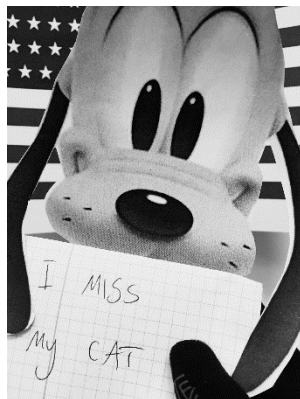 I MISS
My CAT